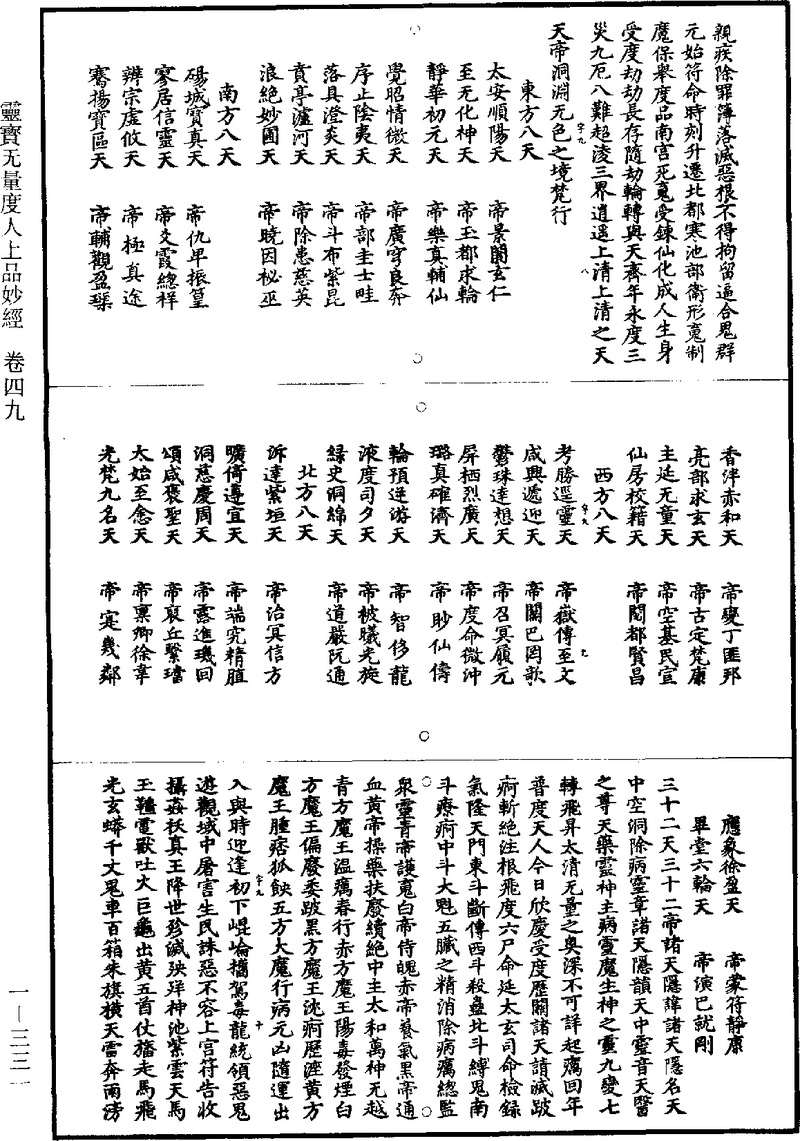 親疾除罪簿落滅惡根不得拘留逼合鬼群
元始符命時刻升遷北都寒池部衛形魂制
魔保舉度品南宮死魂受鍊仙化成人生身
受度劫劫長存隨劫輪轉與天齊年永度三
災九厄八難超凌三界逍遥上清上清之天
天帝洞淵无色之境梵行
東方八天
太安順陽天 帝景閣玄仁
至无化神天 帝玉都求輪
靜華初元天 帝樂真輔仙
覺昭情微天 帝廣穹良奔
序止陰夷天 帝部圭士畦
落具澄炎天 帝斗布紫昆
賁亭瀘河天 帝除患慈英
浪絶妙國天 帝曉因祕巫
南方八天
碭城寶真天 帝仇牟振篁
寥居信靈天 帝爻霞總祥
辨宗虛攸天 帝極真途
騫揚寶區天 帝輔觀盈琛
香泮亦和天 帝變丁匪邦
亮部求玄天 帝古定梵康
主延无童天 帝空基民宣
仙房校籍天 帝閲都賢昌
西方八天
考勝逕靈天 帝嶽傳至文
咸興遞迎天 帝闌巴罔歌
鬱珠達想天 帝召冥願元
屏栖烈廣天 帝度命微沖
璐真確濟天 帝眇仙儔
輪預逆游天 帝智侈龍
液度司夕天 帝被曦光旋
緑史洞綿天 帝道嚴阮通
北方八天
泝達紫垣天 帝治冥信方
曠倚遵宜天 帝端究精植
洞慈慶周天 帝露進璣回
頌咸褒聖天 帝裒丘緊璿
太始至念天 帝禀卿徐韋
光梵九名天 帝寔幾鄰
應象徐盈天 帝蒙符靜康
畢堂六輪天 帝演巳就剛
三十二天三十二帝諸天隱諱諸天隱名天
中空洞除病靈章諸天隱韻天中靈音天醫
之尊天藥靈神主病靈魔生神之靈九變七
轉飛昇太清无量之奥深不可詳起癘回年
普度天人今日欣慶受度歷關諸天請滅跛
痾斬絶注根飛度六尸命延太玄司命檢録
氣隆天門東斗斷傳西斗殺蠱北斗縛鬼南
斗療痾中斗大魁五臟之精消除病癘總監
衆靈青帝護魂白帝侍魄赤帝養氣黑帝通
血黄帝操藥扶廢續絶中主太和萬神无越
青方魔王温癘春行赤方魔王陽毒發煙白
方魔王偏廢委跛黑方魔王沈痾歷溼黄方
魔王腫痞狐䬣五方大魔行病元凶隨運出
入與時迎逢初下崐崘攜駕毒龍統領惡鬼
遊觀域中屠害生民誅惡不容上官符告收
攝姦祅真王降世殄滅殃殍神池紫雲天馬
王韃電獸吐火巨龜出黄五首仗旛走馬飛
光玄蟒千丈鬼車百箱朱旗横天雷奔雨滂
靈寶无量度人上品妙經 卷四九
一—三三一